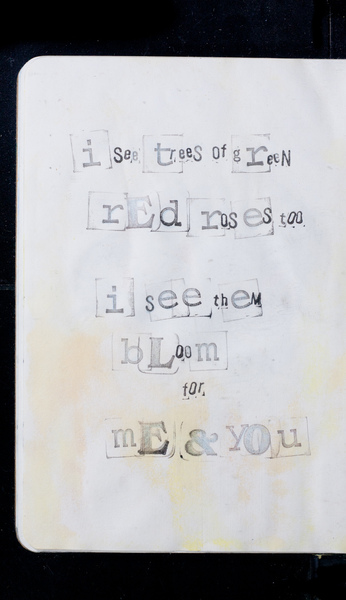 i see trees of green
rEd roses too
i see theM
bLoom
for
mE & yOu